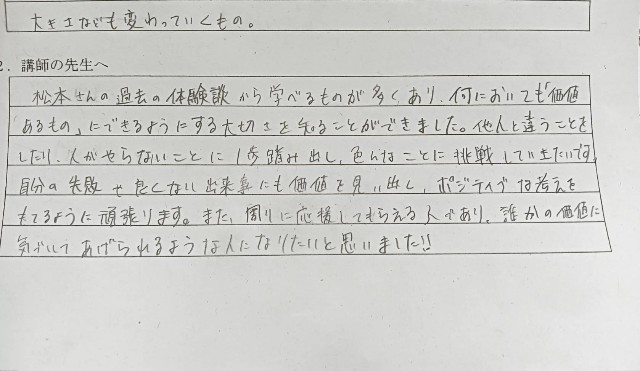 大きさなども変わっていくもの。
2. 講師の先生へ
松本さんの過去の体験談から学べるものが多くあり、何においても「価値
あるもの」にできるようにする大切さを知ることができました。他人と違うことを
したり、人がやらないことに1歩踏み出し、色んなことに挑戦していきたいです。
自分の失敗や良くない出来事にも価値を見い出し、ポジティブな考えを
もてるように頑張ります。また、周りに応援してもらえる人であり、誰かの価値に
気づいてあげられるような人になりたいと思いました!!